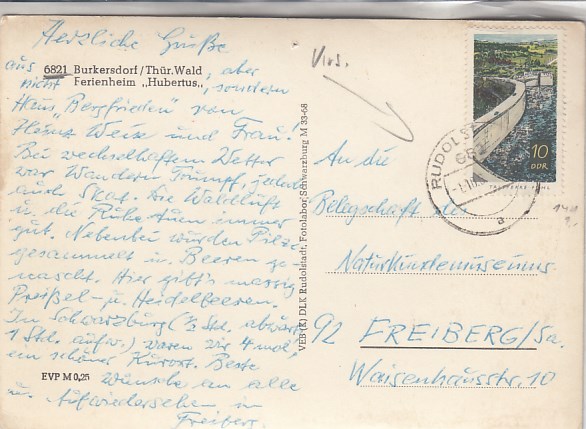 Herzliche Grüße
aus 6821 Burkersdorf/Thür. Wald, aber
nicht Ferienheim „Hubertus", sondern
Haus „Bergfrieden" von
Heinz Weise und Frau!
Bei wechselhaftem Wetter
war Wandern Trumpf, jedoch
auch Skat. Die Waldluft
u. die Ruhe tuen immer
gut. Nebenbei wurden Pilze
gesammelt u. Beeren ge-
nascht. Hier gibt's massig
Preißel- u. Heidelbeeren.
In Schwarzburg (½ Std. abwärts
1 Std. aufw.) waren wir 4 mal,
ein schöner Kurort. Beste
EVP M 0,25 Wünsche an alle
u. Aufwiedersehen in
Freiberg.
VEB (K) DLK Rudolstadt, Fotolabor Schwarzburg M 33-68
10
DDR
RUDOLST
a
An die
Belegschaft des
Naturkundemuseums
92 FREIBERG/Sa.
Waisenhausstr. 10